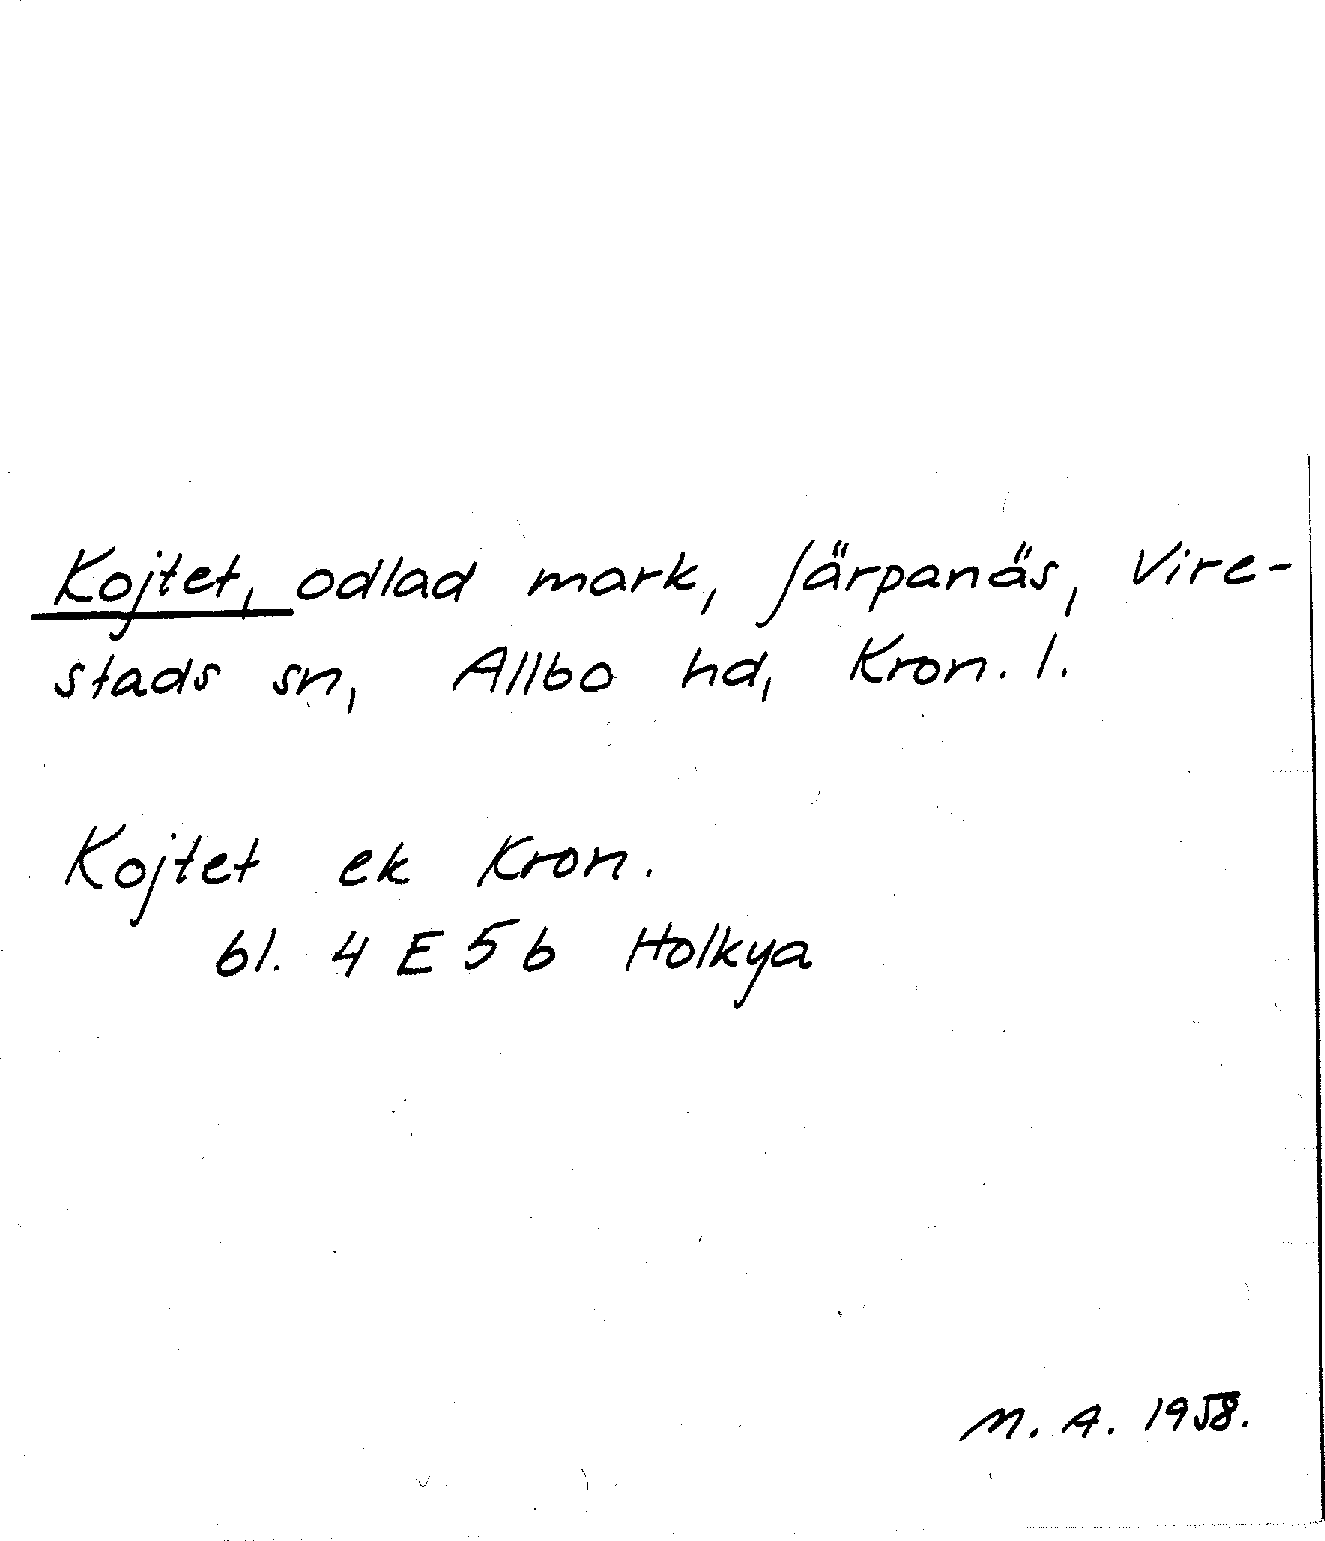 Kojtet, odlad mark, Järpanäs, Vire-
stads sn, Allbo hd, Kron. l.
Kojtet ek Kron.
bl. 4 E 5 b Holkya
M. A. 1958.